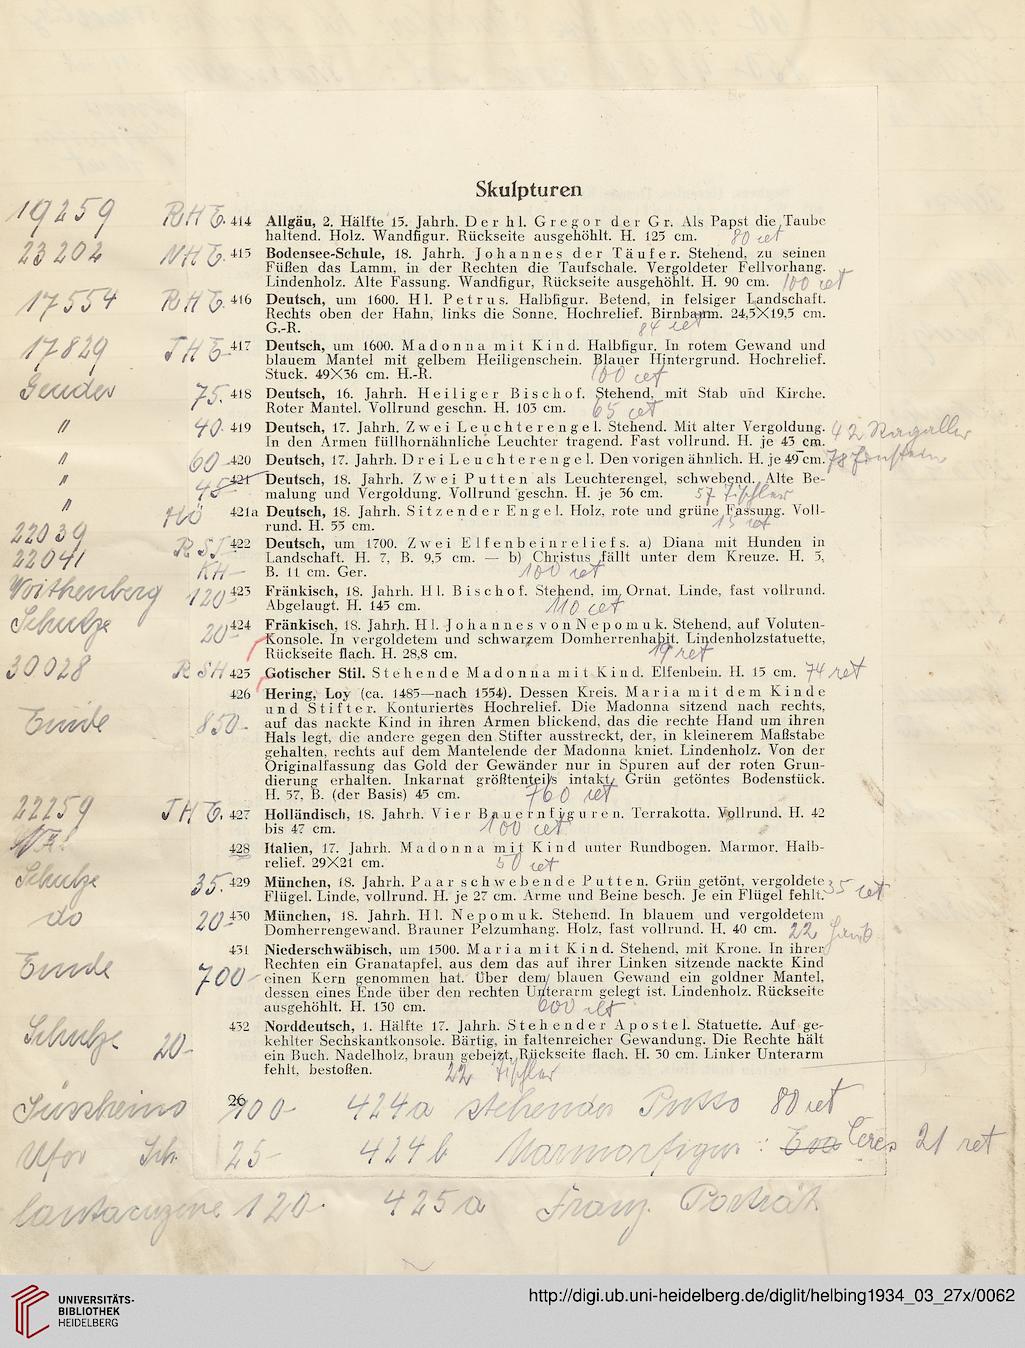 Skulpturen
19259 414 Allgäu, 2. Hälfte 15. Jahrh. Der hl. Gregor der Gr. Als Papst die Taube
haltend. Holz. Wandfigur. Rückseite ausgehöhlt. H. 125 cm. 80 ret
23202 415 Bodensee-Schule, 18. Jahrh. Johannes der Täufer. Stehend, zu seinen
Füßen das Lamm, in der Rechten die Taufschale. Vergoldeter Fellvorhang.
Lindenholz. Alte Fassung. Wandfigur, Rückseite ausgehöhlt. H. 90 cm. 100 ret
17554 416 Deutsch, um 1600. Hl. Petrus. Halbfigur. Betend, in felsiger Landschaft.
Rechts oben der Hahn, links die Sonne. Hochrelief. Birnbaum. 24,5×19,5 cm.
G.-R. 84 ret
17829 417 Deutsch, um 1600. Madonna mit Kind. Halbfigur. In rotem Gewand und
blauem Mantel mit gelbem Heiligenschein. Blauer Hintergrund. Hochrelief.
Stuck. 49×36 cm. H.-R. 100 ret
75.- 418 Deutsch, 16. Jahrh. Heiliger Bischof. Stehend, mit Stab und Kirche.
Roter Mantel. Vollrund geschn. H. 103 cm. 65 ret
" 40.- 419 Deutsch, 17. Jahrh. Zwei Leuchterengel. Stehend. Mit alter Vergoldung. 42
In den Armen füllhornähnliche Leuchter tragend. Fast vollrund. H. je 43 cm.
" 60.- 420 Deutsch, 17. Jahrh. Drei Leuchterengel. Den vorigen ähnlich. H. je 49 cm. 78
" 48.- 421 Deutsch, 18. Jahrh. Zwei Putten als Leuchterengel, schwebend. Alte Be-
malung und Vergoldung. Vollrund geschn. H. je 36 cm. 57 Tischler
" 421a Deutsch, 18. Jahrh. Sitzender Engel. Holz, rote und grüne Fassung. Voll-
rund. H. 55 cm. 15 ret
22039 422 Deutsch, um 1700. Zwei Elfenbeinreliefs. a) Diana mit Hunden in
22041 Landschaft. H. 7, B. 9,5 cm. — b) Christus fällt unter dem Kreuze. H. 5,
B. 11 cm. Ger. 100 ret
120 423 Fränkisch, 18. Jahrh. Hl. Bischof. Stehend, im Ornat. Linde, fast vollrund.
Abgelaugt. H. 145 cm. 110 ret
Schulze 20- 424 Fränkisch, 18. Jahrh. Hl. Johannes von Nepomuk. Stehend, auf Voluten-
Konsole. In vergoldetem und schwarzem Domherrenhabit. Lindenholzstatuette,
Rückseite flach. H. 28,8 cm. 19 ret
30028 425 Gotischer Stil. Stehende Madonna mit Kind. Elfenbein. H. 15 cm. 74 ret
426 Hering, Loy (ca. 1485—nach 1554). Dessen Kreis. Maria mit dem Kinde
und Stifter. Konturiertes Hochrelief. Die Madonna sitzend nach rechts,
850.- auf das nackte Kind in ihren Armen blickend, das die rechte Hand um ihren
Hals legt, die andere gegen den Stifter ausstreckt, der, in kleinerem Maßstabe
gehalten, rechts auf dem Mantelende der Madonna kniet. Lindenholz. Von der
Originalfassung das Gold der Gewänder nur in Spuren auf der roten Grun-
dierung erhalten. Inkarnat größtenteils intakt. Grün getöntes Bodenstück.
H. 57, B. (der Basis) 45 cm. 760 ret
22259 427 Holländisch, 18. Jahrh. Vier Bauernfiguren. Terrakotta. Vollrund. H. 42
bis 47 cm. 100 ret
428 Italien, 17. Jahrh. Madonna mit Kind unter Rundbogen. Marmor. Halb-
relief. 29×21 cm. 50 ret
Schulze 35.- 429 München, 18. Jahrh. Paar schwebende Putten. Grün getönt, vergoldete 35 ret
Flügel. Linde, vollrund. H. je 27 cm. Arme und Beine besch. Je ein Flügel fehlt.
do 20.- 430 München, 18. Jahrh. Hl. Nepomuk. Stehend. In blauem und vergoldetem
Domherrengewand. Brauner Pelzumhang. Holz, fast vollrund. H. 40 cm. 22
431 Niederschwäbisch, um 1500. Maria mit Kind. Stehend, mit Krone. In ihrer
700- Rechten ein Granatapfel, aus dem das auf ihrer Linken sitzende nackte Kind
einen Kern genommen hat. Über dem blauen Gewand ein goldner Mantel,
dessen eines Ende über den rechten Unterarm gelegt ist. Lindenholz. Rückseite
ausgehöhlt. H. 130 cm. 600 ret
Schulze 20- 432 Norddeutsch, 1. Hälfte 17. Jahrh. Stehender Apostel. Statuette. Auf ge-
kehlter Sechskantkonsole. Bärtig, in faltenreicher Gewandung. Die Rechte hält
ein Buch. Nadelholz, braun gebeizt. Rückseite flach. H. 30 cm. Linker Unterarm
fehlt, bestoßen. 22 Tischler
26
100- 424a stehender Putto 80 ret
25- 424b Marmorfigur: Eva Ceres 21 ret
120.- 425a Franz. Porträt
UNIVERSITÄTS-
BIBLIOTHEK
HEIDELBERG
http://digi.ub.uni-heidelberg.de/diglit/helbing1934_03_27x/0062